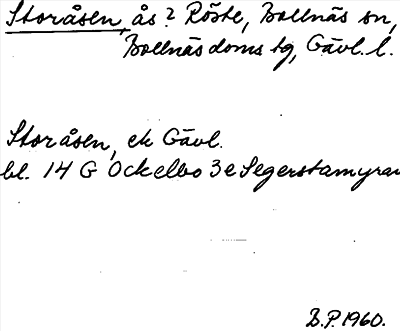 Storåsen, ås? Röste, Bollnäs sn,
Bollnäs doms tg, Gävl. l.
Storåsen, ek Gävl.
bl. 14 G Ockelbo 3e Segerstamyran
B.P. 1960.